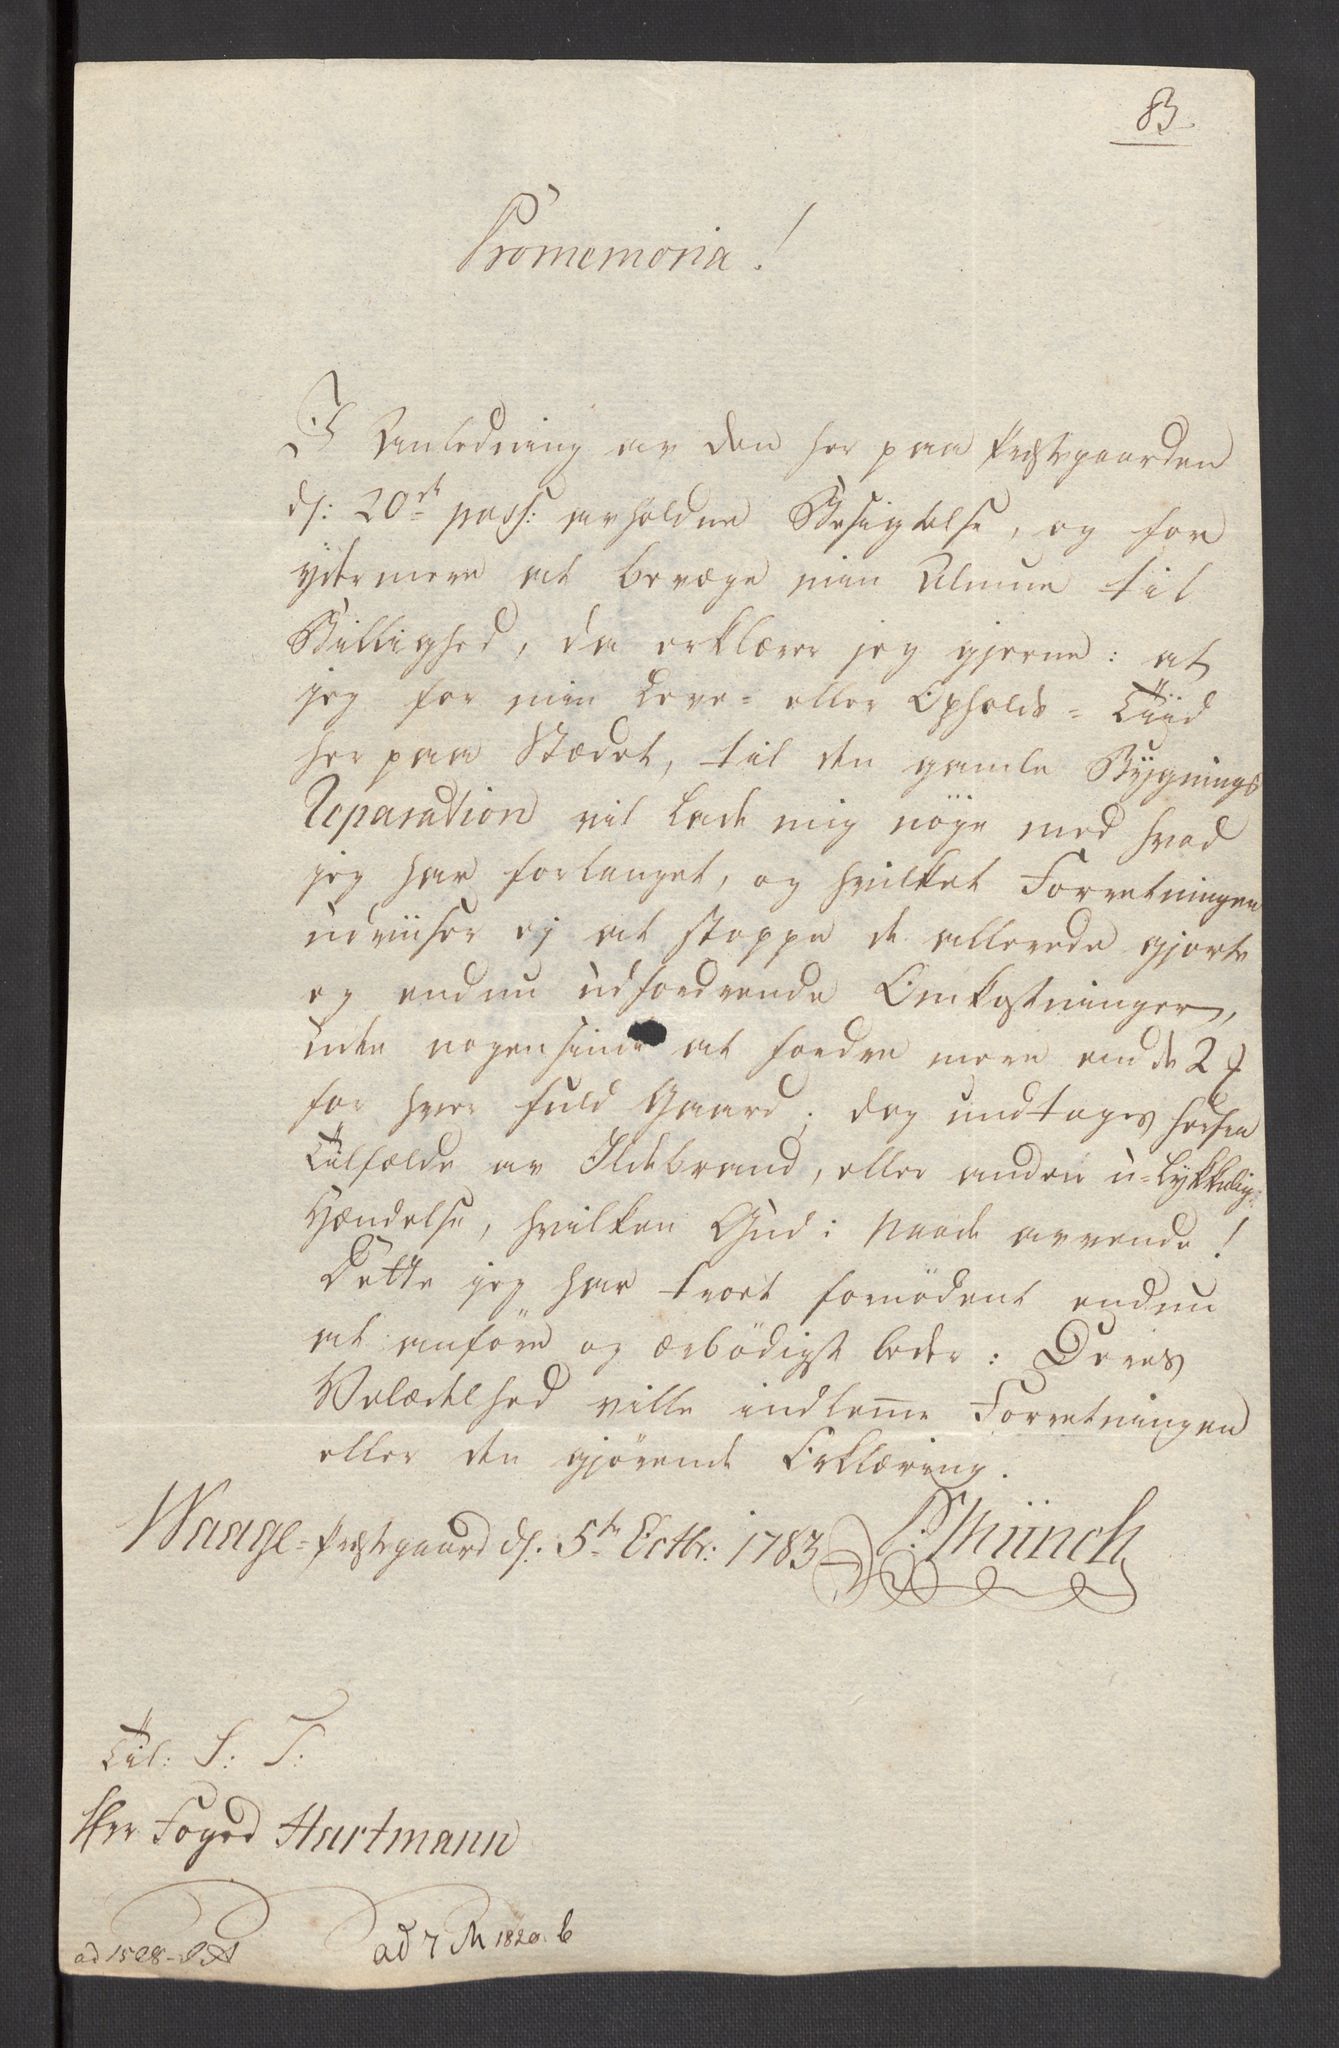 83
Promemoria!
I Anledning av den her paa Præstegaarden
d: 20de pass: avholdne Besigtelse, og for
ydermere at bevæge min Almue til
Billighed, da erklærer jeg gjerne: at
jeg for min Leve= eller Opholds=Tiid
her paa Stædet, til den gamle Bygnings
Reparation vil lade mig nöye med hvad
jeg har forlanget, og hvilket Forretningen
udviiser ej at stoppe de allerede gjorte
og endnu udfordrende Omkostninger,
uden nogensinde at fordre mere end de 2
for hver fuld Gaard; dog undtages herfra
Tilfælde av Ildebrand, eller anden u=lykkelig
Hændelse, hvilken Gud i Naade avvende!
Dette jeg har troet fornödent endnu
at anföre og ærbödigst beder: Deres
Velædelhed ville indlem̅e Forretningen
eller den gjörende Erklæring.
Waage=Præstegaard d: 5te Octbr: 1783 P: Münch
Til: S: T:
Hr. Foged Hartmann
ad 7 M 1820. b